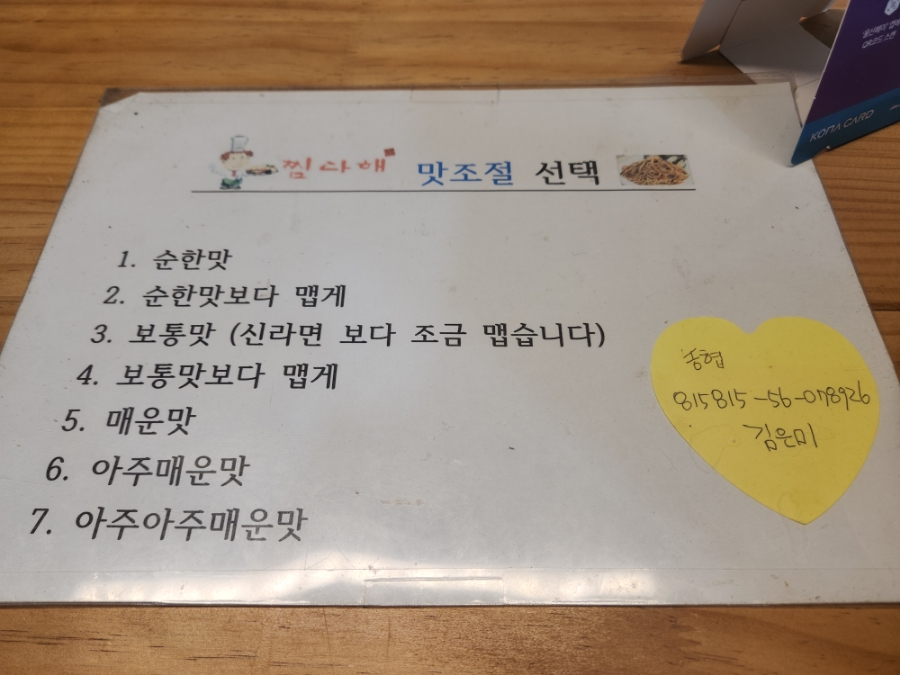 찜다해 맛조절 선택
1. 순한맛
2. 순한맛보다 맵게
3. 보통맛 (신라면 보다 조금 맵습니다)
4. 보통맛보다 맵게
5. 매운맛
6. 아주매운맛
7. 아주아주매운맛
농협
815815-56-078926
김은미
KONA CARD